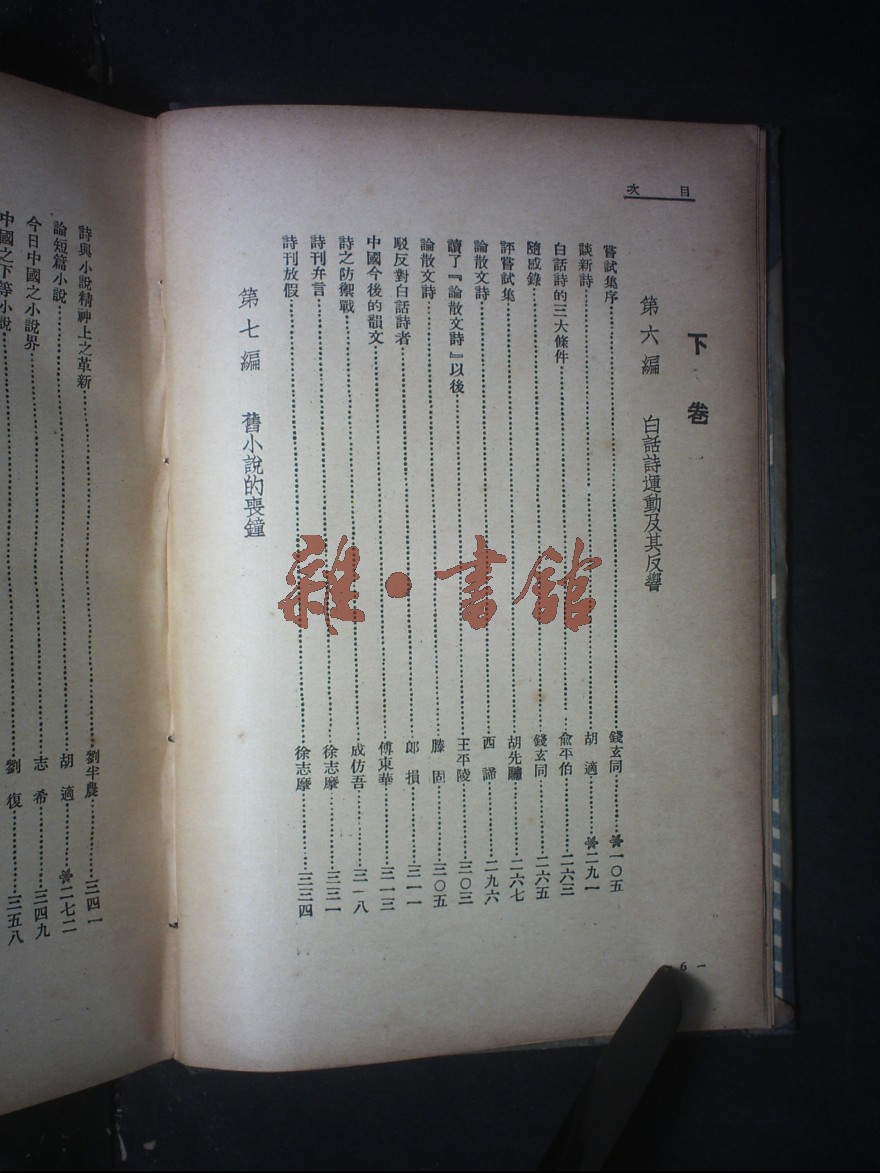 目次
下卷
第六編　白話詩運動及其反響
嘗試集序……錢玄同……※一〇五
談新詩……胡適……※二九一
白話詩的三大條件……俞平伯……二六三
隨感錄……錢玄同……二六五
評嘗試集……胡先驌……二六七
論散文詩……西諦……二九六
讀了『論散文詩』以後……王平陵……三〇三
論散文詩……滕固……三〇五
駁反對白話詩者……郎損……三一一
中國今後的韻文……傅東華……三一三
詩之防禦戰……成仿吾……三一八
詩刊弁言……徐志摩……三三一
詩刊放假……徐志摩……三三四
第七編　舊小說的喪鐘
- 6 -
詩與小說精神上之革新……劉半農……三四一
論短篇小說……胡適……※二七二
今日中國之小說界……志希……三四九
中國之下等小說……劉復……三五八
雜·書館